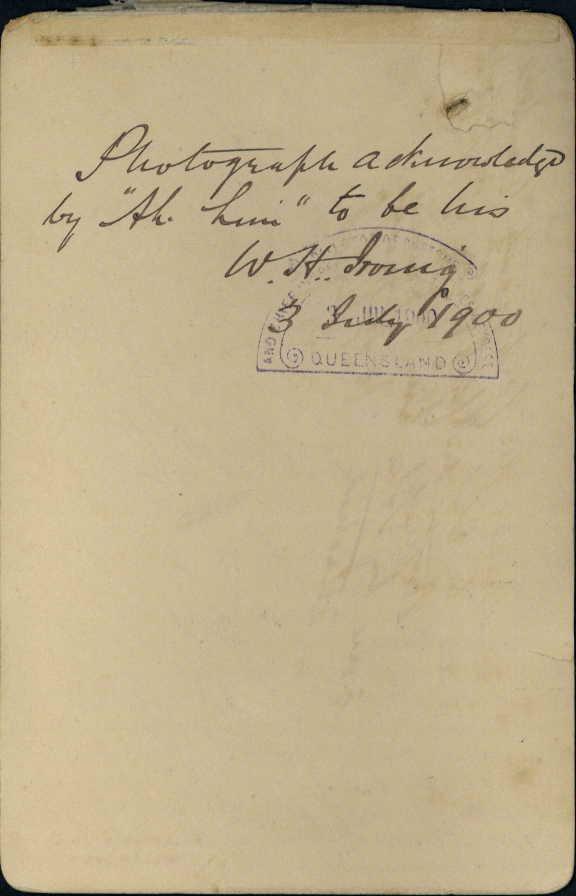 Photograph acknowledge
by "Ah. Lin" to be his
W. H. Irving
3 July 1900
QUEENSLAND